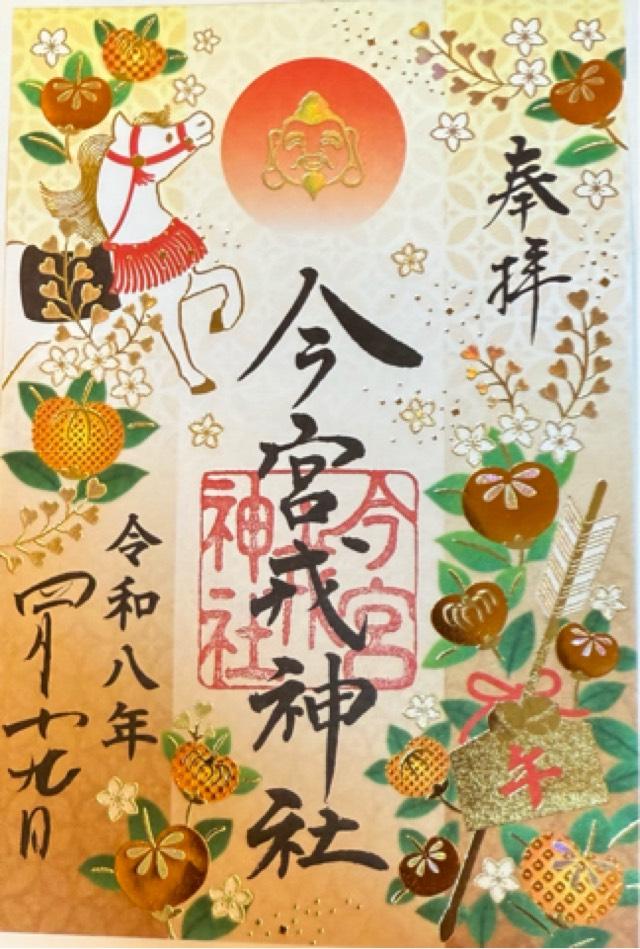 奉拝
今宮戎神社
今宮
戎
神社
令和八年
四月十九日
午